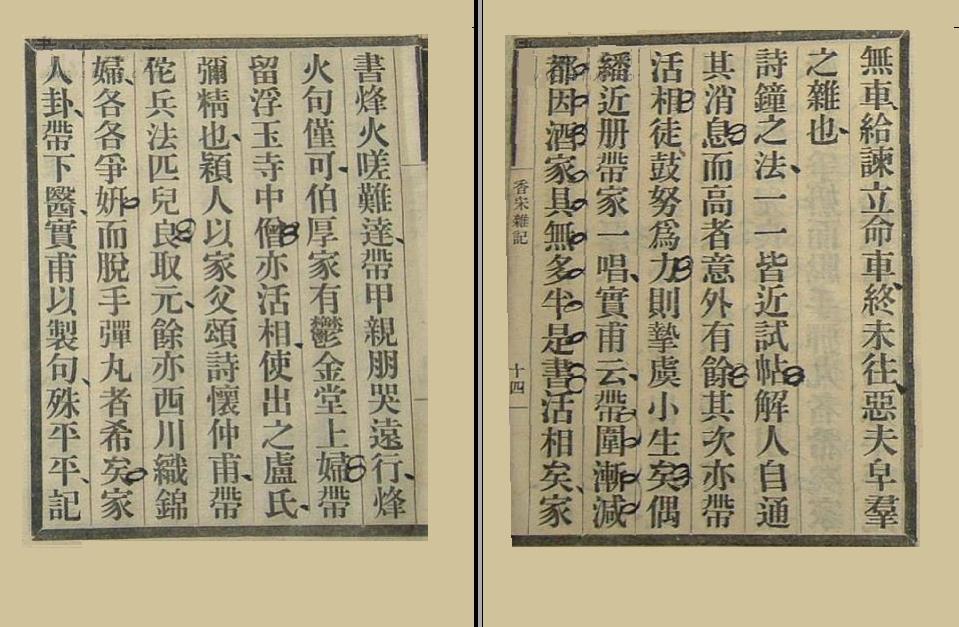 無車給諫立命車終未往惡夫皁羣
之雜也
詩鐘之法一一皆近試帖解人自通
其消息而高者意外有餘其次亦帶
活相徒鼓努爲力則摯虞小生矣偶
繙近册帶家一唱實甫云帶圍漸減
都因酒家具無多半是書活相矣家
香宋雜記
十四
書烽火嗟難達帶甲親朋哭遠行烽
火句僅可伯厚家有鬱金堂上婦帶
留浮玉寺中僧亦活相使出之盧氏
彌精也穎人以家父頌詩懷仲甫帶
佗兵法匹兒良取元餘亦西川織錦
婦各各爭妍而脫手彈丸者希矣家
人卦帶下醫實甫以製句殊平平記